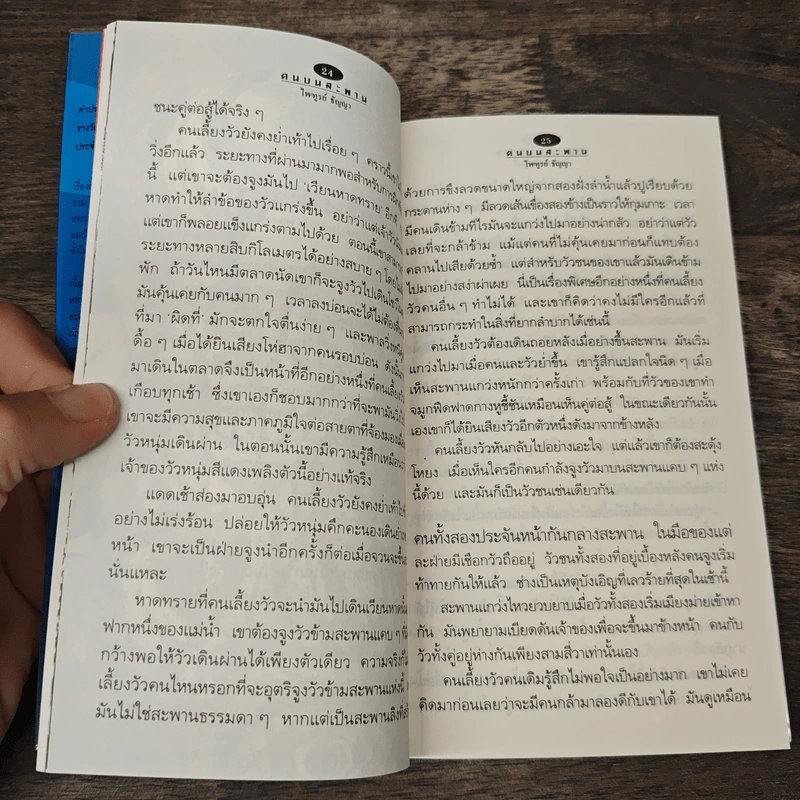 24
คนบนสะพาน
ไพฑูรย์ ธัญญา
ชนะคู่ต่อสู้ได้จริง ๆ
คนเลี้ยงวัวยังคงย่ำเท้าไปเรื่อย ๆ คราวนี้เขาไม่
วิ่งอีกแล้ว ระยะทางที่ผ่านมามากพอสำหรับการฝึก
นี้ แต่เขาจะต้องจูงมันไป 'เวียนหาดทราย' อีกที่
หาดทำให้ลำข้อของวัวแกร่งขึ้น อย่าว่าแต่เจ้าวัว
แต่เขาก็พลอยแข็งแกร่งตามไปด้วย ตอนนี้เขาสามารถ
ระยะทางหลายสิบกิโลเมตรได้อย่างสบาย ๆ โดยไม่
พัก ถ้าวันไหนมีตลาดนัดเขาก็จะจูงวัวไปเดินโชว์ให้
มันคุ้นเคยกับคนมาก ๆ เวลาลงบ่อนจะได้ไม่ต้องตื่น
ที่มา 'ผิดที่' มักจะตกใจตื่นง่าย ๆ และพาลวิ่งหนี
ดื้อ ๆ เมื่อได้ยินเสียงโห่ฮาจากคนรอบบ่อน ดังนั้น
มาเดินในตลาดจึงเป็นหน้าที่อีกอย่างหนึ่งที่คนเลี้ยง
เกือบทุกเช้า ซึ่งเขาเองก็ชอบมากกว่าที่จะพามันไป
เขาจะมีความสุขและภาคภูมิใจต่อสายตาที่จ้องมองเมื่อ
วัวหนุ่มเดินผ่าน ในตอนนั้นเขามีความรู้สึกเหมือน
เจ้าของวัวหนุ่มสีแดงเพลิงตัวนี้อย่างแท้จริง
แดดเช้าส่องมาอบอุ่น คนเลี้ยงวัวยังคงย่ำเท้าไป
อย่างไม่เร่งร้อน ปล่อยให้วัวหนุ่มคึกคะนองเดินย่ำ
หน้า เขาจะเป็นฝ่ายจูงนำอีกครั้งก็ต่อเมื่อจวนจะขึ้น
นั่นแหละ
หาดทรายที่คนเลี้ยงวัวจะนำมันไปเดินเวียนหาดนั้น
ฟากหนึ่งของแม่น้ำ เขาต้องจูงวัวข้ามสะพานแคบ ๆ ที่มี
กว้างพอให้วัวเดินผ่านได้เพียงตัวเดียว ความจริงก็ไม่
เลี้ยงวัวคนไหนหรอกที่จะอุตริจูงวัวข้ามสะพานแห่งนี้
มันไม่ใช่สะพานธรรมดา ๆ หากแต่เป็นสะพานลิงที่
25
คนบนสะพาน
ไพฑูรย์ ธัญญา
ด้วยการขึงลวดขนาดใหญ่จากสองฝั่งลำน้ำแล้วปูเรียบด้วย
กระดานห่าง ๆ มีลวดเส้นเขื่องสองข้างเป็นราวให้กุมเกาะ เวลา
มีคนเดินข้ามทีไรมันจะแกว่งไปมาอย่างน่ากลัว อย่าว่าแต่วัว
เลยที่จะกล้าข้าม แม้แต่คนที่ไม่คุ้นเคยมาก่อนก็แทบต้อง
คลานไปเสียด้วยซ้ำ แต่สำหรับวัวชนของเขาแล้วมันเดินข้าม
ไปมาอย่างสง่าผ่าเผย นี่เป็นเรื่องพิเศษอีกอย่างหนึ่งที่คนเลี้ยง
วัวคนอื่น ๆ ทำไม่ได้ และเขาก็คิดว่าคงไม่มีใครอีกแล้วที่
สามารถกระทำในสิ่งที่ยากลำบากได้เช่นนี้
คนเลี้ยงวัวต้องเดินถอยหลังเมื่อย่างขึ้นสะพาน มันเริ่ม
แกว่งไปมาเมื่อคนและวัวย่ำขึ้น เขารู้สึกแปลกใจนิด ๆ เมื่อ
เห็นสะพานแกว่งหนักกว่าครั้งเก่า พร้อมกับที่วัวของเขาทำ
จมูกฟืดฟาดกางหูชี้ชันเหมือนเห็นคู่ต่อสู้ ในขณะเดียวกันนั้น
เองเขาก็ได้ยินเสียงวัวอีกตัวหนึ่งดังมาจากข้างหลัง
คนเลี้ยงวัวหันกลับไปอย่างเอะใจ แต่แล้วเขาก็ต้องสะดุ้ง
โหยง เมื่อเห็นใครอีกคนกำลังจูงวัวมาบนสะพานแคบ ๆ แห่ง
นี้ด้วย และมันก็เป็นวัวชนเช่นเดียวกัน
คนทั้งสองประจันหน้ากันกลางสะพาน ในมือของแต่
ละฝ่ายมีเชือกวัวถืออยู่ วัวชนทั้งสองที่อยู่เบื้องหลังคนจูงเริ่ม
ท้าทายกันให้แล้ว ช่างเป็นเหตุบังเอิญที่เลวร้ายที่สุดในเช้านี้
สะพานแกว่งไหวยวบยาบเมื่อวัวทั้งสองเริ่มเมียงม่ายเข้าหา
กัน มันพยายามเบียดดันเจ้าของเพื่อจะขึ้นมาข้างหน้า คนกับ
วัวทั้งคู่อยู่ห่างกันเพียงสามสี่วาเท่านั้นเอง
คนเลี้ยงวัวคนเดิมรู้สึกไม่พอใจเป็นอย่างมาก เขาไม่เคย
คิดมาก่อนเลยว่าจะมีคนกล้ามาลองดีกับเขาได้ มันดูเหมือน